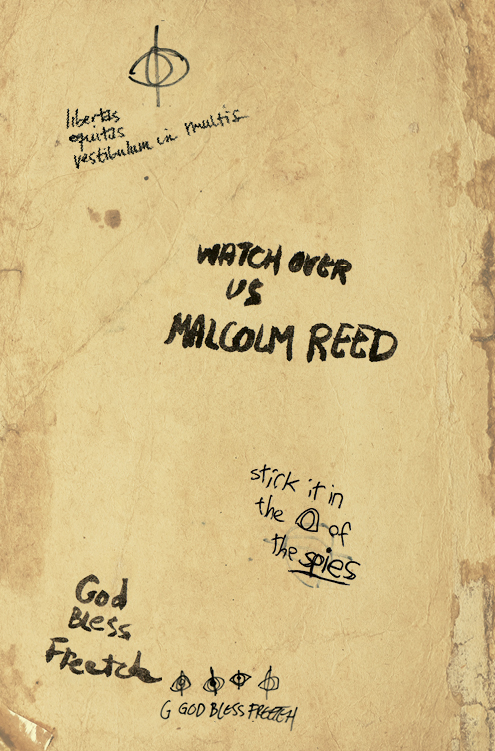 libertas
equitas
vestibulum in multis
WATCH OVER
US
MALCOLM REED
stick it in
the of
the spies
God
Bless
Freetch
G GOD BLESS FREEZEH